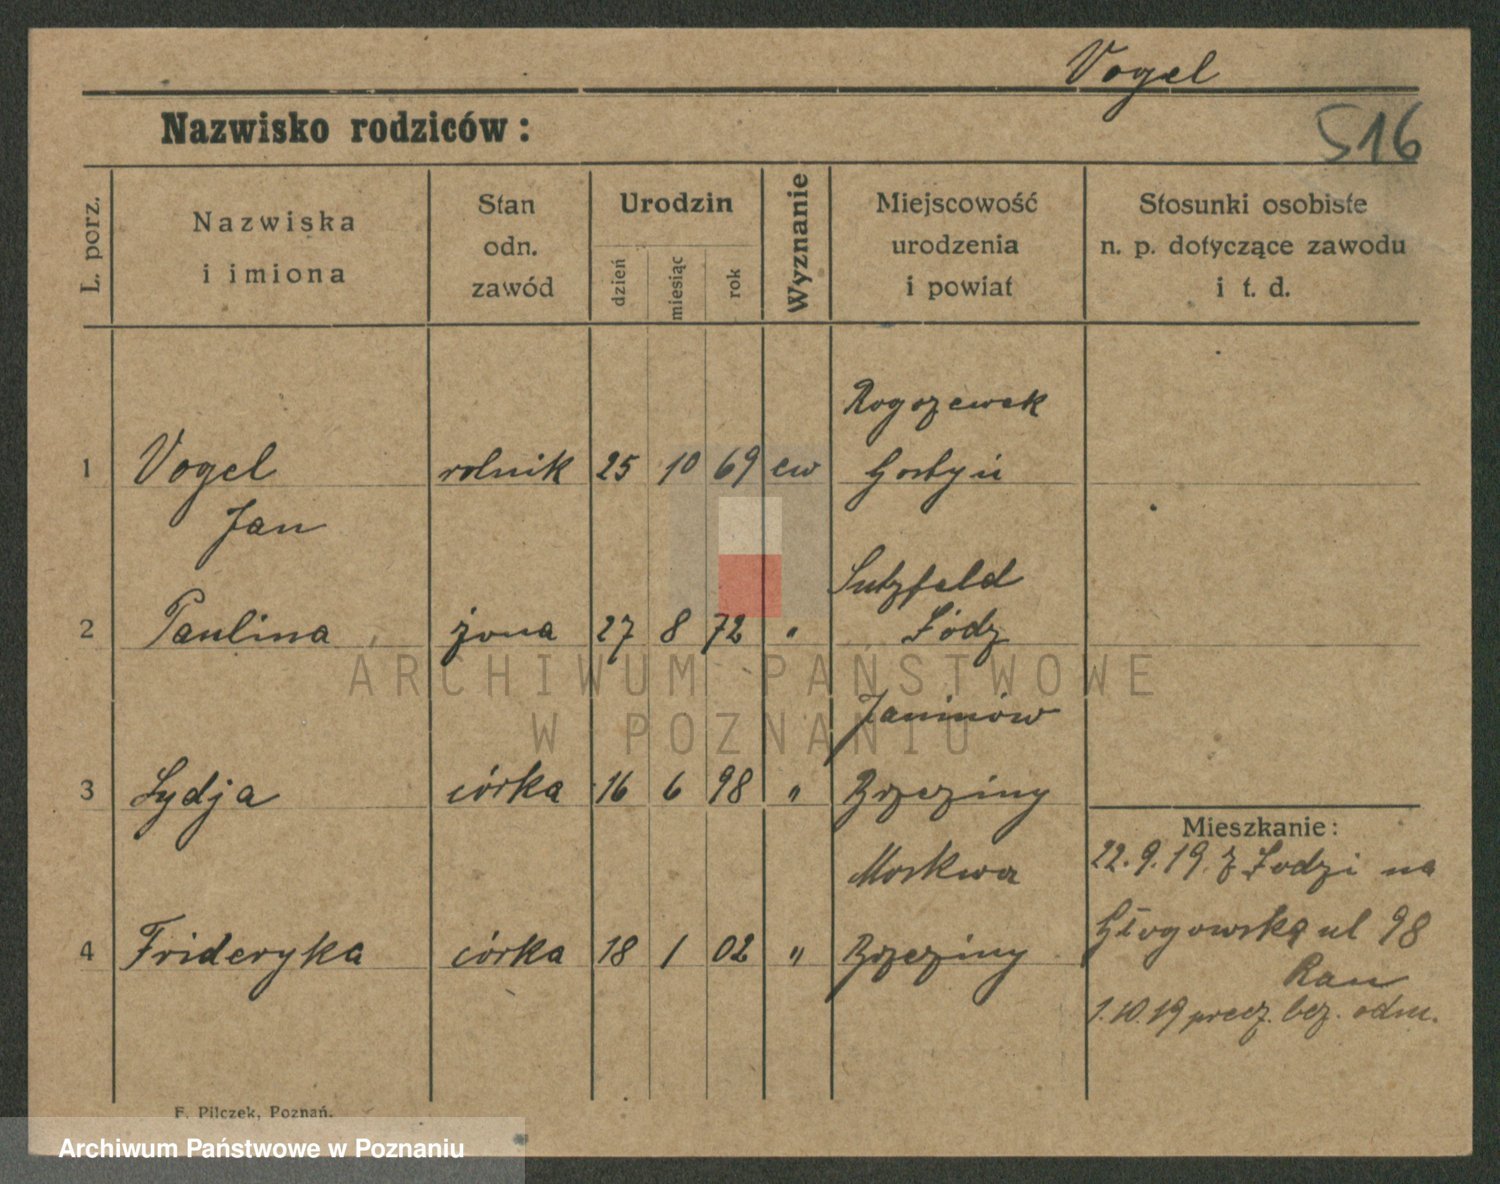 Vogel
516
Nazwisko rodziców:
L. porz.
Nazwiska
i imiona
Stan
odn.
zawód
Urodzin
dzień
miesiąc
rok
Wyznanie
Miejscowość
urodzenia
i powiat
Stosunki osobiste
n. p. dotyczące zawodu
i t. d.
Rogozewek
1 Vogel rolnik 25 10 69 ew Gostyń
Jan
Sulzfeld
2 Paulina żona 27 8 72 " Łódz
Janinów
3 Lydja córka 16 6 98 " Brzeziny
Mieszkanie:
Moskwa
22.9.19. z Łodzi na
Głogowska ul 98
4 Frideryka córka 18 1 02 " Brzeziny
Rau
1.10.19 precz. bez. odm.
F. Pilczek, Poznań.
ARCHIWUM PAŃSTWOWE
W POZNANIU
Archiwum Państwowe w Poznaniu